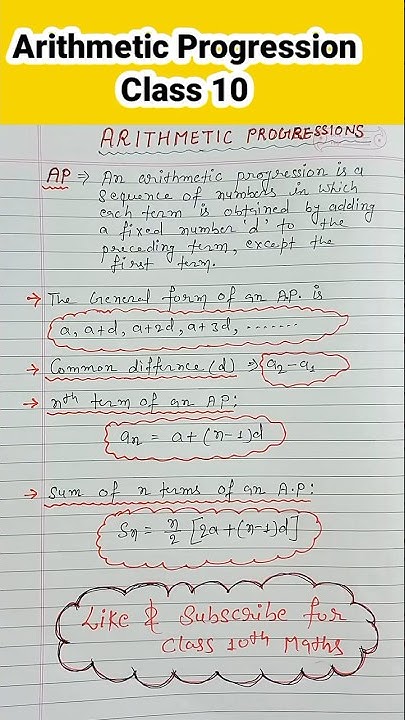 Arithmetic Progression
Class 10
ARITHMETIC PROGRESSIONS
AP ⇒ An arithmetic progression is a
sequence of numbers in which
each term is obtained by adding
a fixed number 'd' to the
preceding term, except the
first term.
→ The General form of an A.P. is
a, a+d, a+2d, a+3d, .......
→ Common differnce (d) ⇒ a₂-a₁
→ nth term of an AP:
aₙ = a+(n-1)d
→ Sum of n terms of an A.P:
Sₙ = n/2 [2a+(n-1)d]
Like & Subscribe for
Class 10th Maths